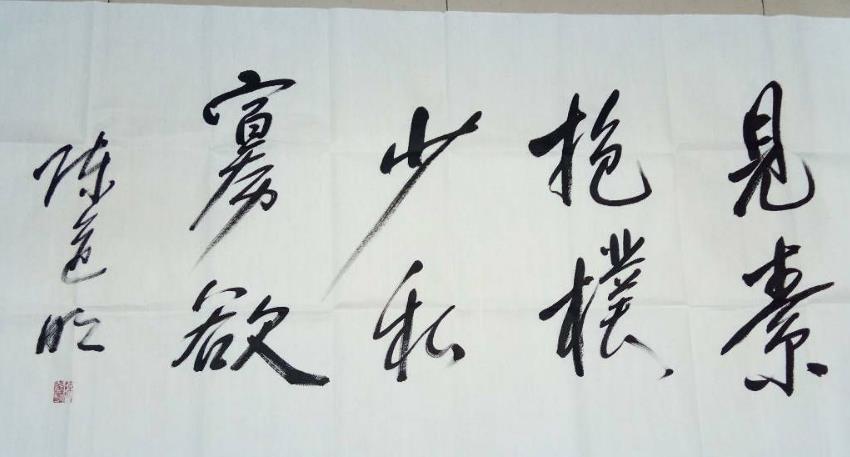 見素
抱樸
少私
寡欲
陈道明